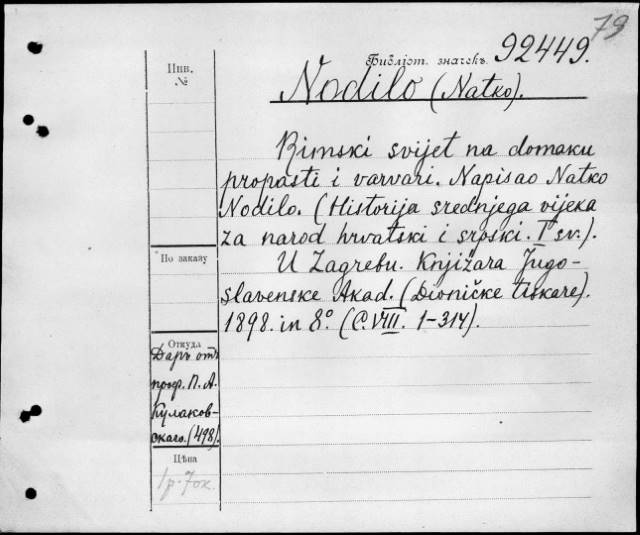 79
Библіот. значекъ. 92449.
Nodilo (Natko).
Инв.
№
Rimski svijet na domaku
propasti i varvari. Napisao Natko
Nodilo. (Historija srednjega vijeka
za narod hrvatski i srpski. I sv.).
По заказу
U Zagrebu. Knjižara Jugo-
slavenske Akad. (Dioničke tiskare).
1898. in 8º. (C. VIII. 1-314).
Откуда
Даръ отъ
проф. П. А.
Кулаков-
скаго. (498).
Цѣна
1р. 70к.